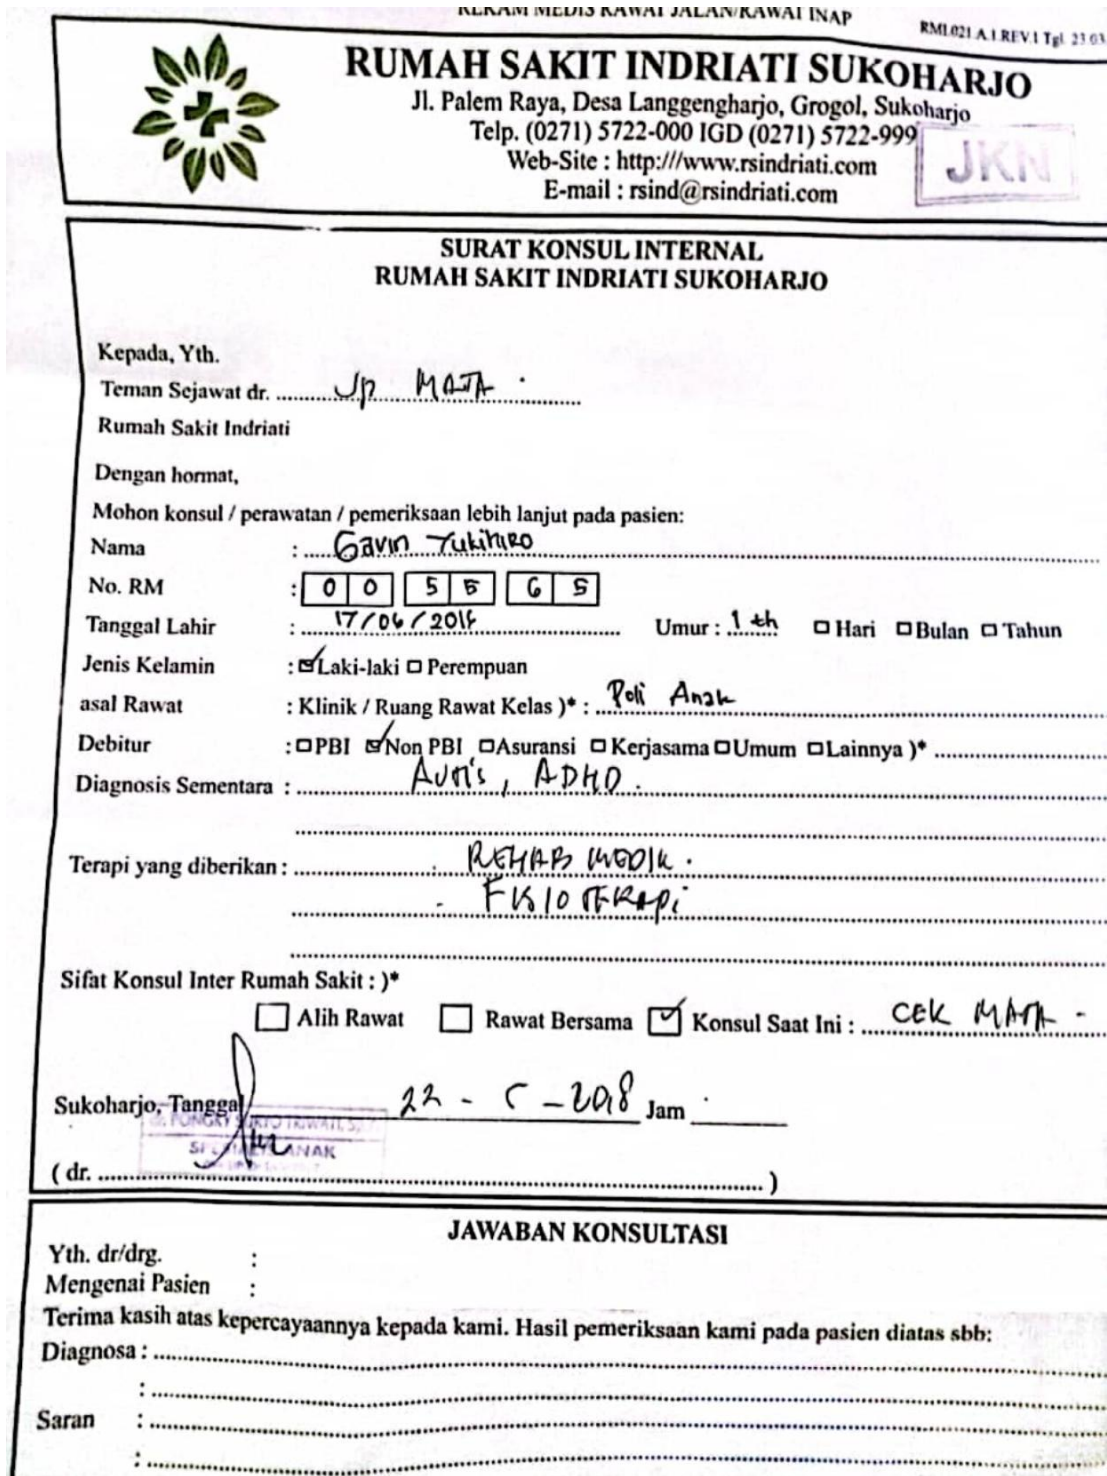 REKAM MEDIS RAWAT JALAN/RAWAT INAP
RMI.021.A.1.REV.1 Tgl. 23.03.
RUMAH SAKIT INDRIATI SUKOHARJO
Jl. Palem Raya, Desa Langgengharjo, Grogol, Sukoharjo
Telp. (0271) 5722-000 IGD (0271) 5722-999
Web-Site : http:///www.rsindriati.com
E-mail : rsind@rsindriati.com
JKN
SURAT KONSUL INTERNAL
RUMAH SAKIT INDRIATI SUKOHARJO
Kepada, Yth.
Teman Sejawat dr. Up MATA
Rumah Sakit Indriati
Dengan hormat,
Mohon konsul / perawatan / pemeriksaan lebih lanjut pada pasien:
Nama : Gavin Yukihiro
No. RM : 0 0 5 5 6 5
Tanggal Lahir : 17/06/201 Umur : 1 th Hari Bulan Tahun
Jenis Kelamin : Laki-laki Perempuan
asal Rawat : Klinik / Ruang Rawat Kelas )* : Poli Anak
Debitur : PBI Non PBI Asuransi Kerjasama Umum Lainnya )*
Diagnosis Sementara : Autis, ADHD.
Terapi yang diberikan : . REHAB MEDIK.
- FISIOTERAPi
Sifat Konsul Inter Rumah Sakit : )*
Alih Rawat Rawat Bersama Konsul Saat Ini : CEK MATA -
Sukoharjo, Tanggal 22 - 5 - 2018 Jam
SPESIALIS ANAK
( dr. )
JAWABAN KONSULTASI
Yth. dr/drg. :
Mengenai Pasien :
Terima kasih atas kepercayaannya kepada kami. Hasil pemeriksaan kami pada pasien diatas sbb:
Diagnosa :
:
Saran :
: